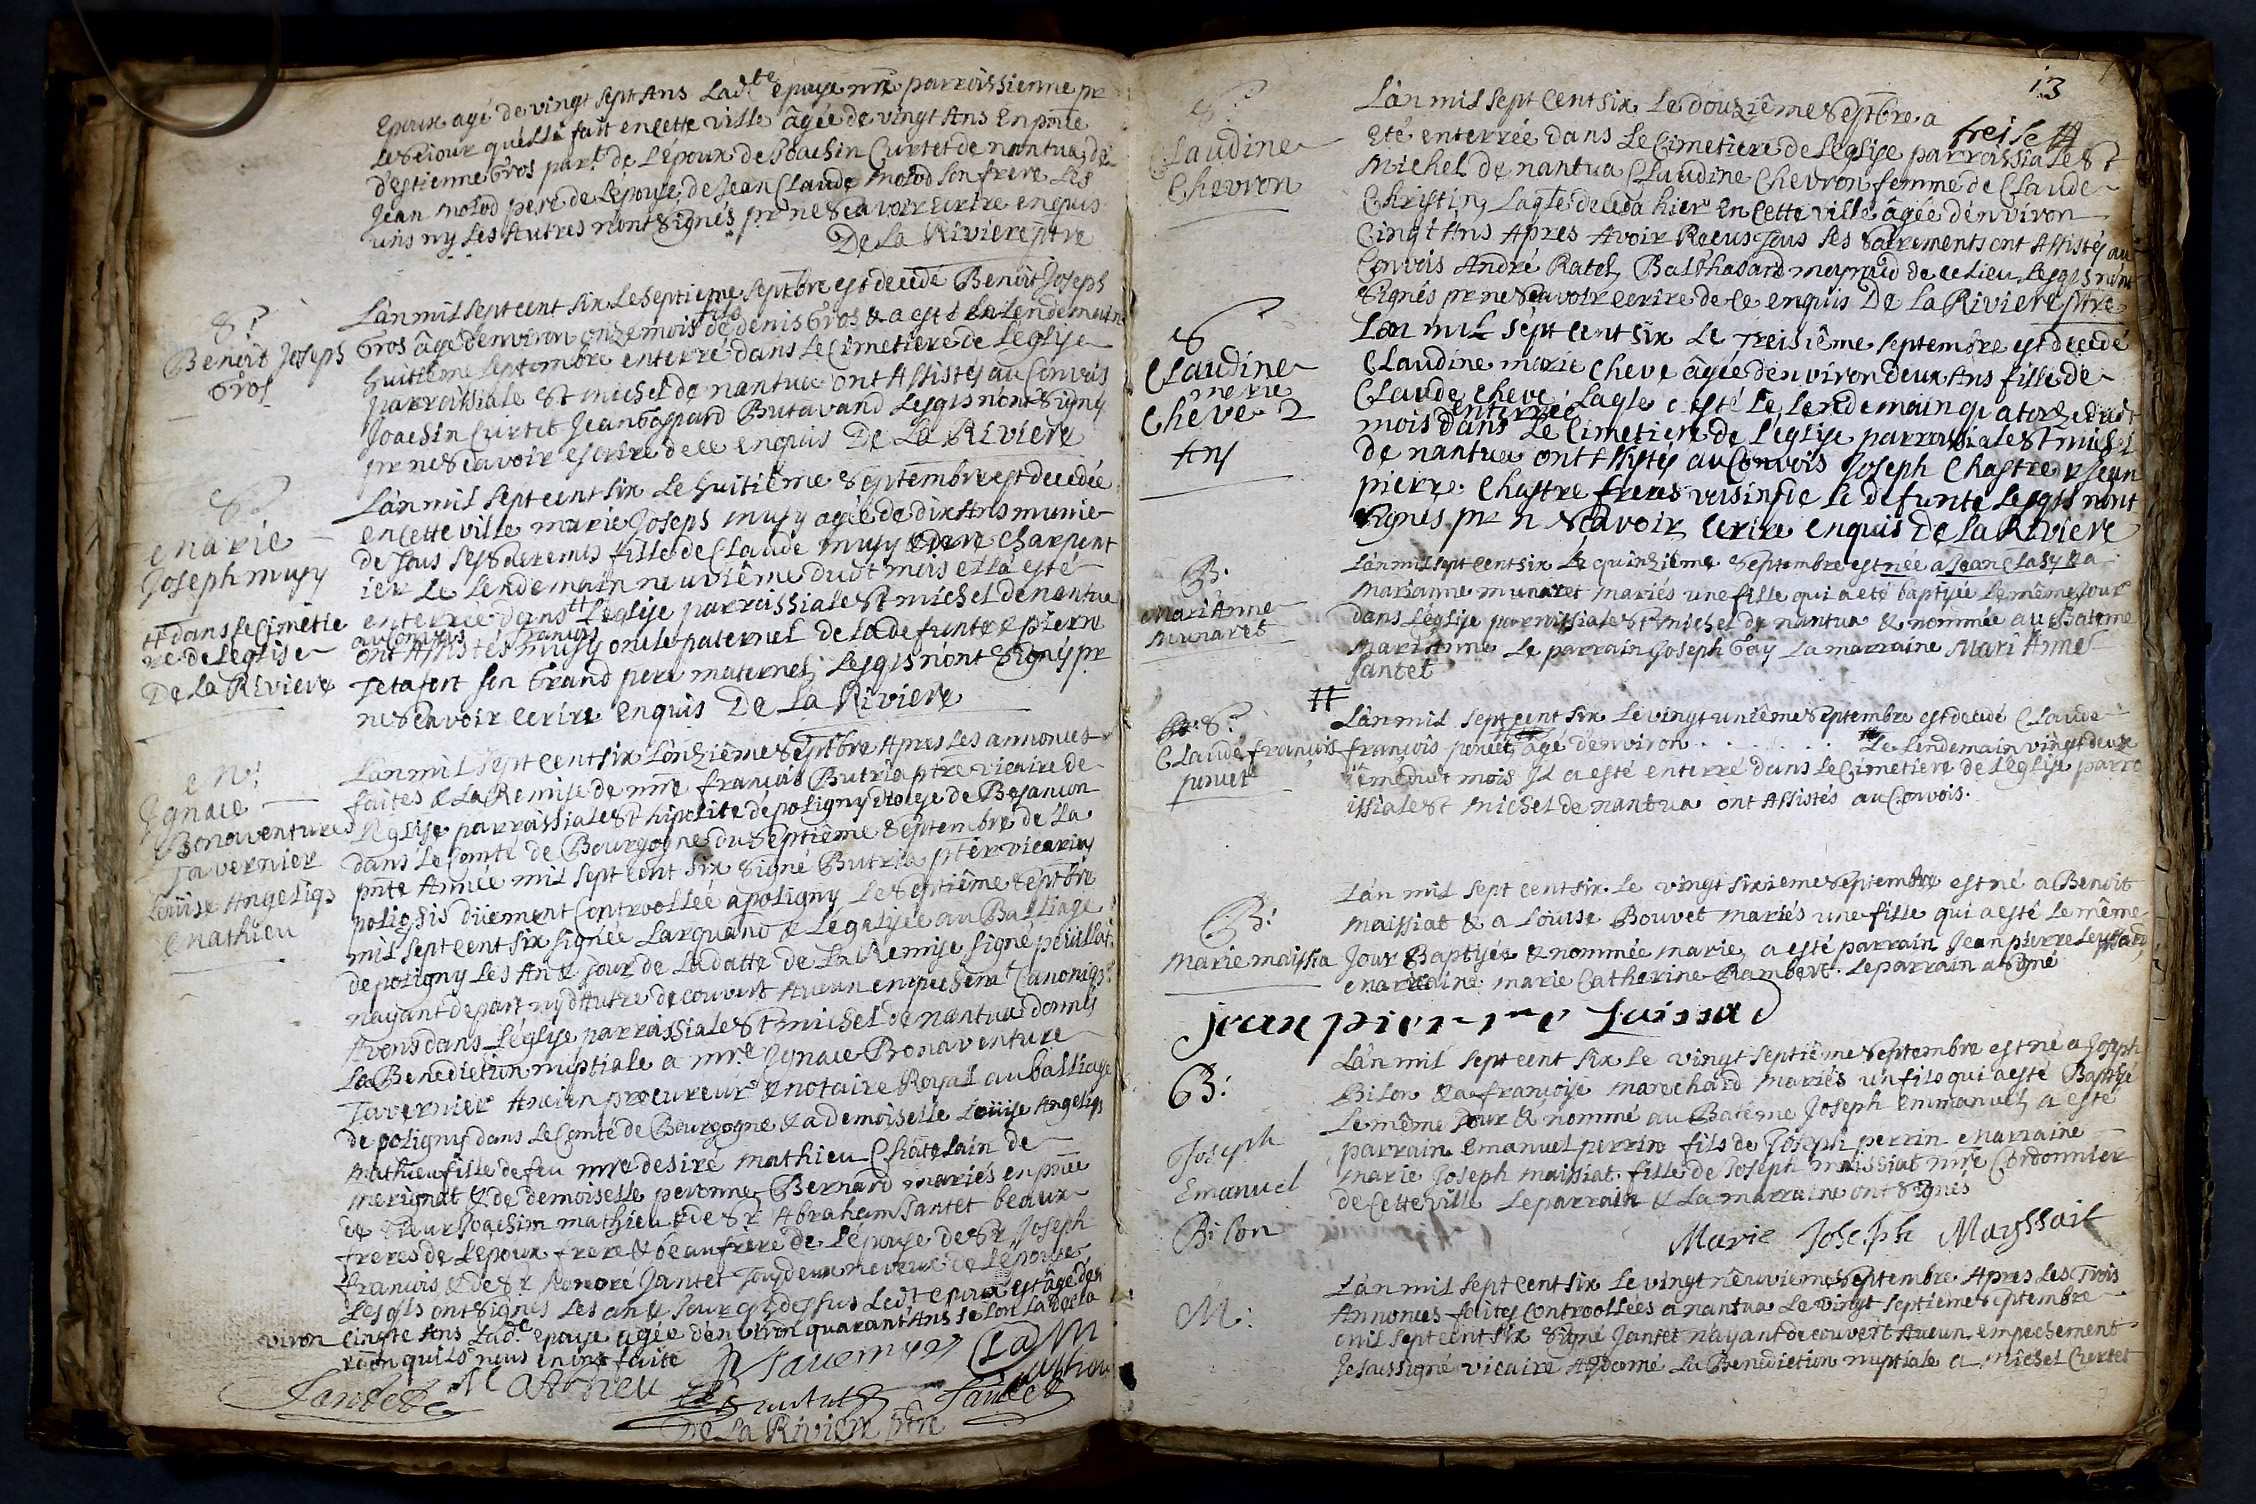 Epoux agé de vingt sept Ans Lad.te epouse nre parroissienne pr
le sejour quelle fait en cette ville âgée de vingt Ans En pnce
d'estienne Gros par.t de L'époux de Joachin Curtet de nantua, de
Jean molod pere de L'épouse, de Jean Claude molod son frere Les
uns ny Les Autres n'ont signés pr ne scavoir ecrire enquis
De La Riviere ptre
S?
Benoit Joseph
Gros
L'an mil sept cent six Le septieme septbre est decedé Benoit Joseph
fils
Gros âgé d'environ onze mois de denis Gros & a esté Le Lendemain
huitieme septembre enterré dans Le Cimetiere de L'eglise
parroissiale St michel de nantua ont Assistés au Convois
Joachin Curtet Jean Gaspard Butavand Lesqls n'ont signés
pr ne scavoir escrire de ce enquis De La Riviere
S?
Marie
Joseph musy
# dans Le Cimetie
re de L'eglise
De La Riviere
L'an mil sept cent six Le huitième septembre est decedée
en cette ville marie Joseph musy agée de dix Ans munie
de Tous ses sacremts fille de Claude musy Charpent
ier Le Lendemain neuvième dudt mois el La esté
enterrée dans # L'eglise parroissiale St michel de nantua
au Convois francois
ont Assistés musy oncle paternel de La defunte & pierre
Tetafort son Grand pere maternel; Lesqls n'ont signés pr
ne scavoir ecrire enquis De La Riviere
M:
Ignace
Bonaventure
Tavernier
Loüise Angeliq3
Mathieu
L'an mil sept cent six L'onzième septbre Apres Les annonces
faites & La Remise de mre françois Butria ptre vicaire de
L'eglise parroissiale St hipolite de poligny diocese de Besancon
dans Le Comté de Bourgogne du septième septembre de La
pnte Année mil sept cent six signé Butria pter vicarius
poligsis düement Controollée a poligny Le septième septbre
mil sept cent six signée Larquand & Legalisée au Balliage
de poligny Les An & Jour de La datte de La Remise signé peüillat
nayant de part ny d'Autre decouvert Aucun empechemt Canoniq3
Avons dans L'eglise parroissiale St michel de nantua donnés
La Benediction nuptiale a mre Ignace Bonaventure
Tavernier Ancien procureur & notaire Royal au balliage
de poligny dans Le Comté de Bourgogne & a demoiselle Loüise Angeliq3
Mathieu fille de feu mre desiré mathieu Châtelain de
merignat & de demoiselle peronne Bernard mariés en pnce
de sieur Joachim mathieu & de Sr Abraham Jantet beaux
freres de L'époux frere & beaufrere de L'épouse de Sr Joseph
francois & de Sr honoré Jantet Tous deux neveux de L'épouse
Lesqls ont signés Les an & Jour que dessus Ledt epoux est âgé d'en
viron cinqte Ans Lad.e epouse agée d'environ quarant Ans selon La decla
ration quils nous en ont faite
Jantet Mathieu Tavernier
Jantet
De La Riviere ptre
13
treise #
S?
Claudine
Chevron
L'an mil sept Cent six Le douzième septbre a
Eté enterrée dans Le Cimetiere de L'eglise parroissiale St
Michel de nantua Claudine Chevron femme de Claude
Christin, Laqle deceda hier En cette ville âgée d'environ
Cinqt Ans Apres Avoir Receus Tous ses sacrements ont Assistés au
Convois André Ratel, Balthasard meynaud de ce Lieu, Lesqls n'ont
signés pr ne scavoir ecrire de ce enquis De La Riviere ptre
S
Claudine
Marie
Cheve 2
Ans
L'an mil sept cent six Le Treisième septembre est decedé
Claudine marie Cheve âgée d'environ deux Ans fille de
Claude Cheve, Laqle a esté Le Lendemain quatorze dudt
enterrée
mois dans Le Cimetiere de L'eglise parroissiale St michel
de nantua ont Assistés au Convois Joseph Chastre & Jean
pierre Chastre freres voisins de La defunte Lesqls n'ont
signés pr n scavoir ecrire enquis de La Riviere
B.
Mari Anne
Munaret
L'an mil sept cent six Le quinzième septembre est née a Jean Clasy & a
Marianne munaret mariés une fille qui a eté baptisée Le même Jour
dans L'église parroissiale St michel de nantua & nommée au Batême
Mari Anne Le parrain Joseph Gay La marraine Mari Anne
Jantet
#
S?
Claude françois
poncet
L'an mil sept cent six Le vingt unième septembre est decedé Claude
françois poncet âgé d'environ . . . . . . Le Lendemain vingt deux
ième dudt mois Il a esté enterré dans Le Cimetiere de L'eglise parro
issiale St michel de nantua ont Assistés au Convois.
B:
Marie maissia
L'an mil sept cent six. Le vingt sixieme septembre est né a Benoit
Maissiat & a Louise Bouvet mariés une fille qui a esté Le même
Jour Baptisée & nommée marie, a esté parrain Jean pierre Leussard,
Marraine marie Catherine Rambert. Le parrain a signé
jean pierre Luissard
B:
Joseph
Emanuel
Bilon
L'an mil sept cent six Le vingt septième septembre est né a Joseph
Bilon & a françoise marechard mariés un fils qui a esté Baptisé
Le même Jour & nommé au Batême Joseph Emmanuel, a esté
parrain Emanuel perrin fils de Joseph perrin Marraine
marie Joseph maissiat fille de Joseph maissiat mre Cordonnier
de Cette ville Le parrain & La marraine ont signés
Marie Joseph Mayssait
M:
L'an mil sept cent six Le vingt neuvieme septembre Apres Les Trois
Annonces faites Controollées a nantua Le vingt septième septembre
mil sept cent six signé Jantet n'ayant decouvert Aucun empechement
Je soussigné vicaire Ay donné La Benediction nuptiale a Michel Curtet